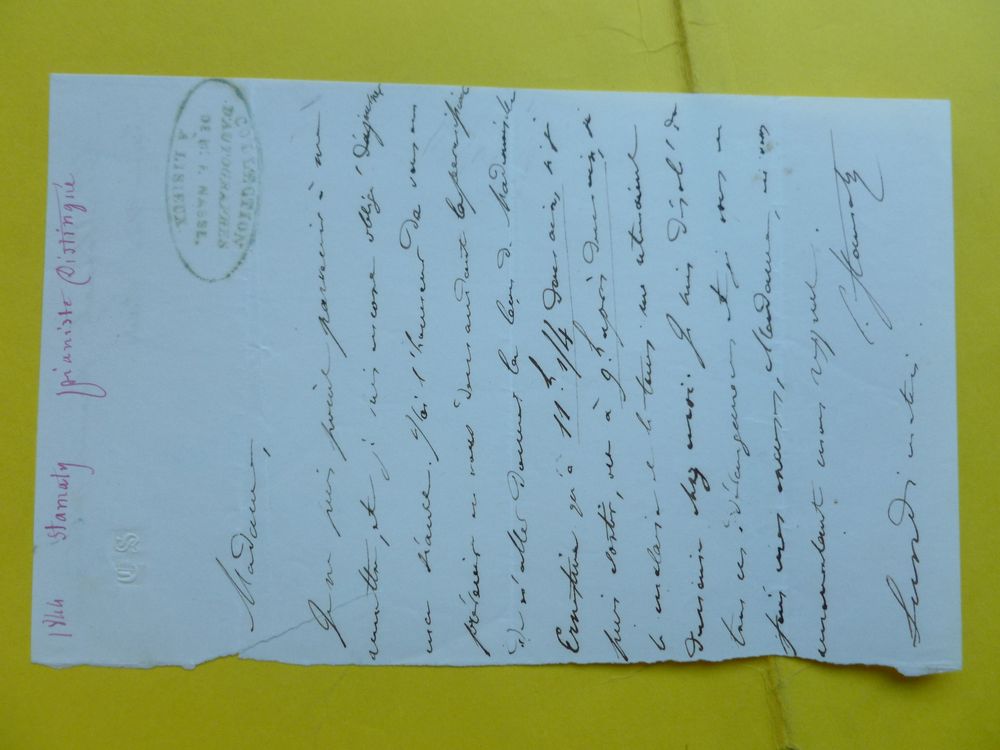 1844 Stamaty pianiste distingué
COLLECTION
D'AUTOGRAPHES
DE Mr. P. NAGEL,
A LISIEUX
CS
Madame,
Je me suis trouvé à une
et je suis encore obligé
une séance. J'ai l'honneur de vous en
prévenir en vous demandant la permission
de n'aller donner la leçon de Mademoiselle
Ernestine qu'à 11.h 1/4 dans ce
puis sortir, ou à 2h après demain, si
le malaise le tems me retenaient
demain chez moi. Je suis désolé de
tous ces dérangemens et je vous en
fais mes excuses, Madame, en vous
mon respect.
C. Stamaty
Lundi matin.